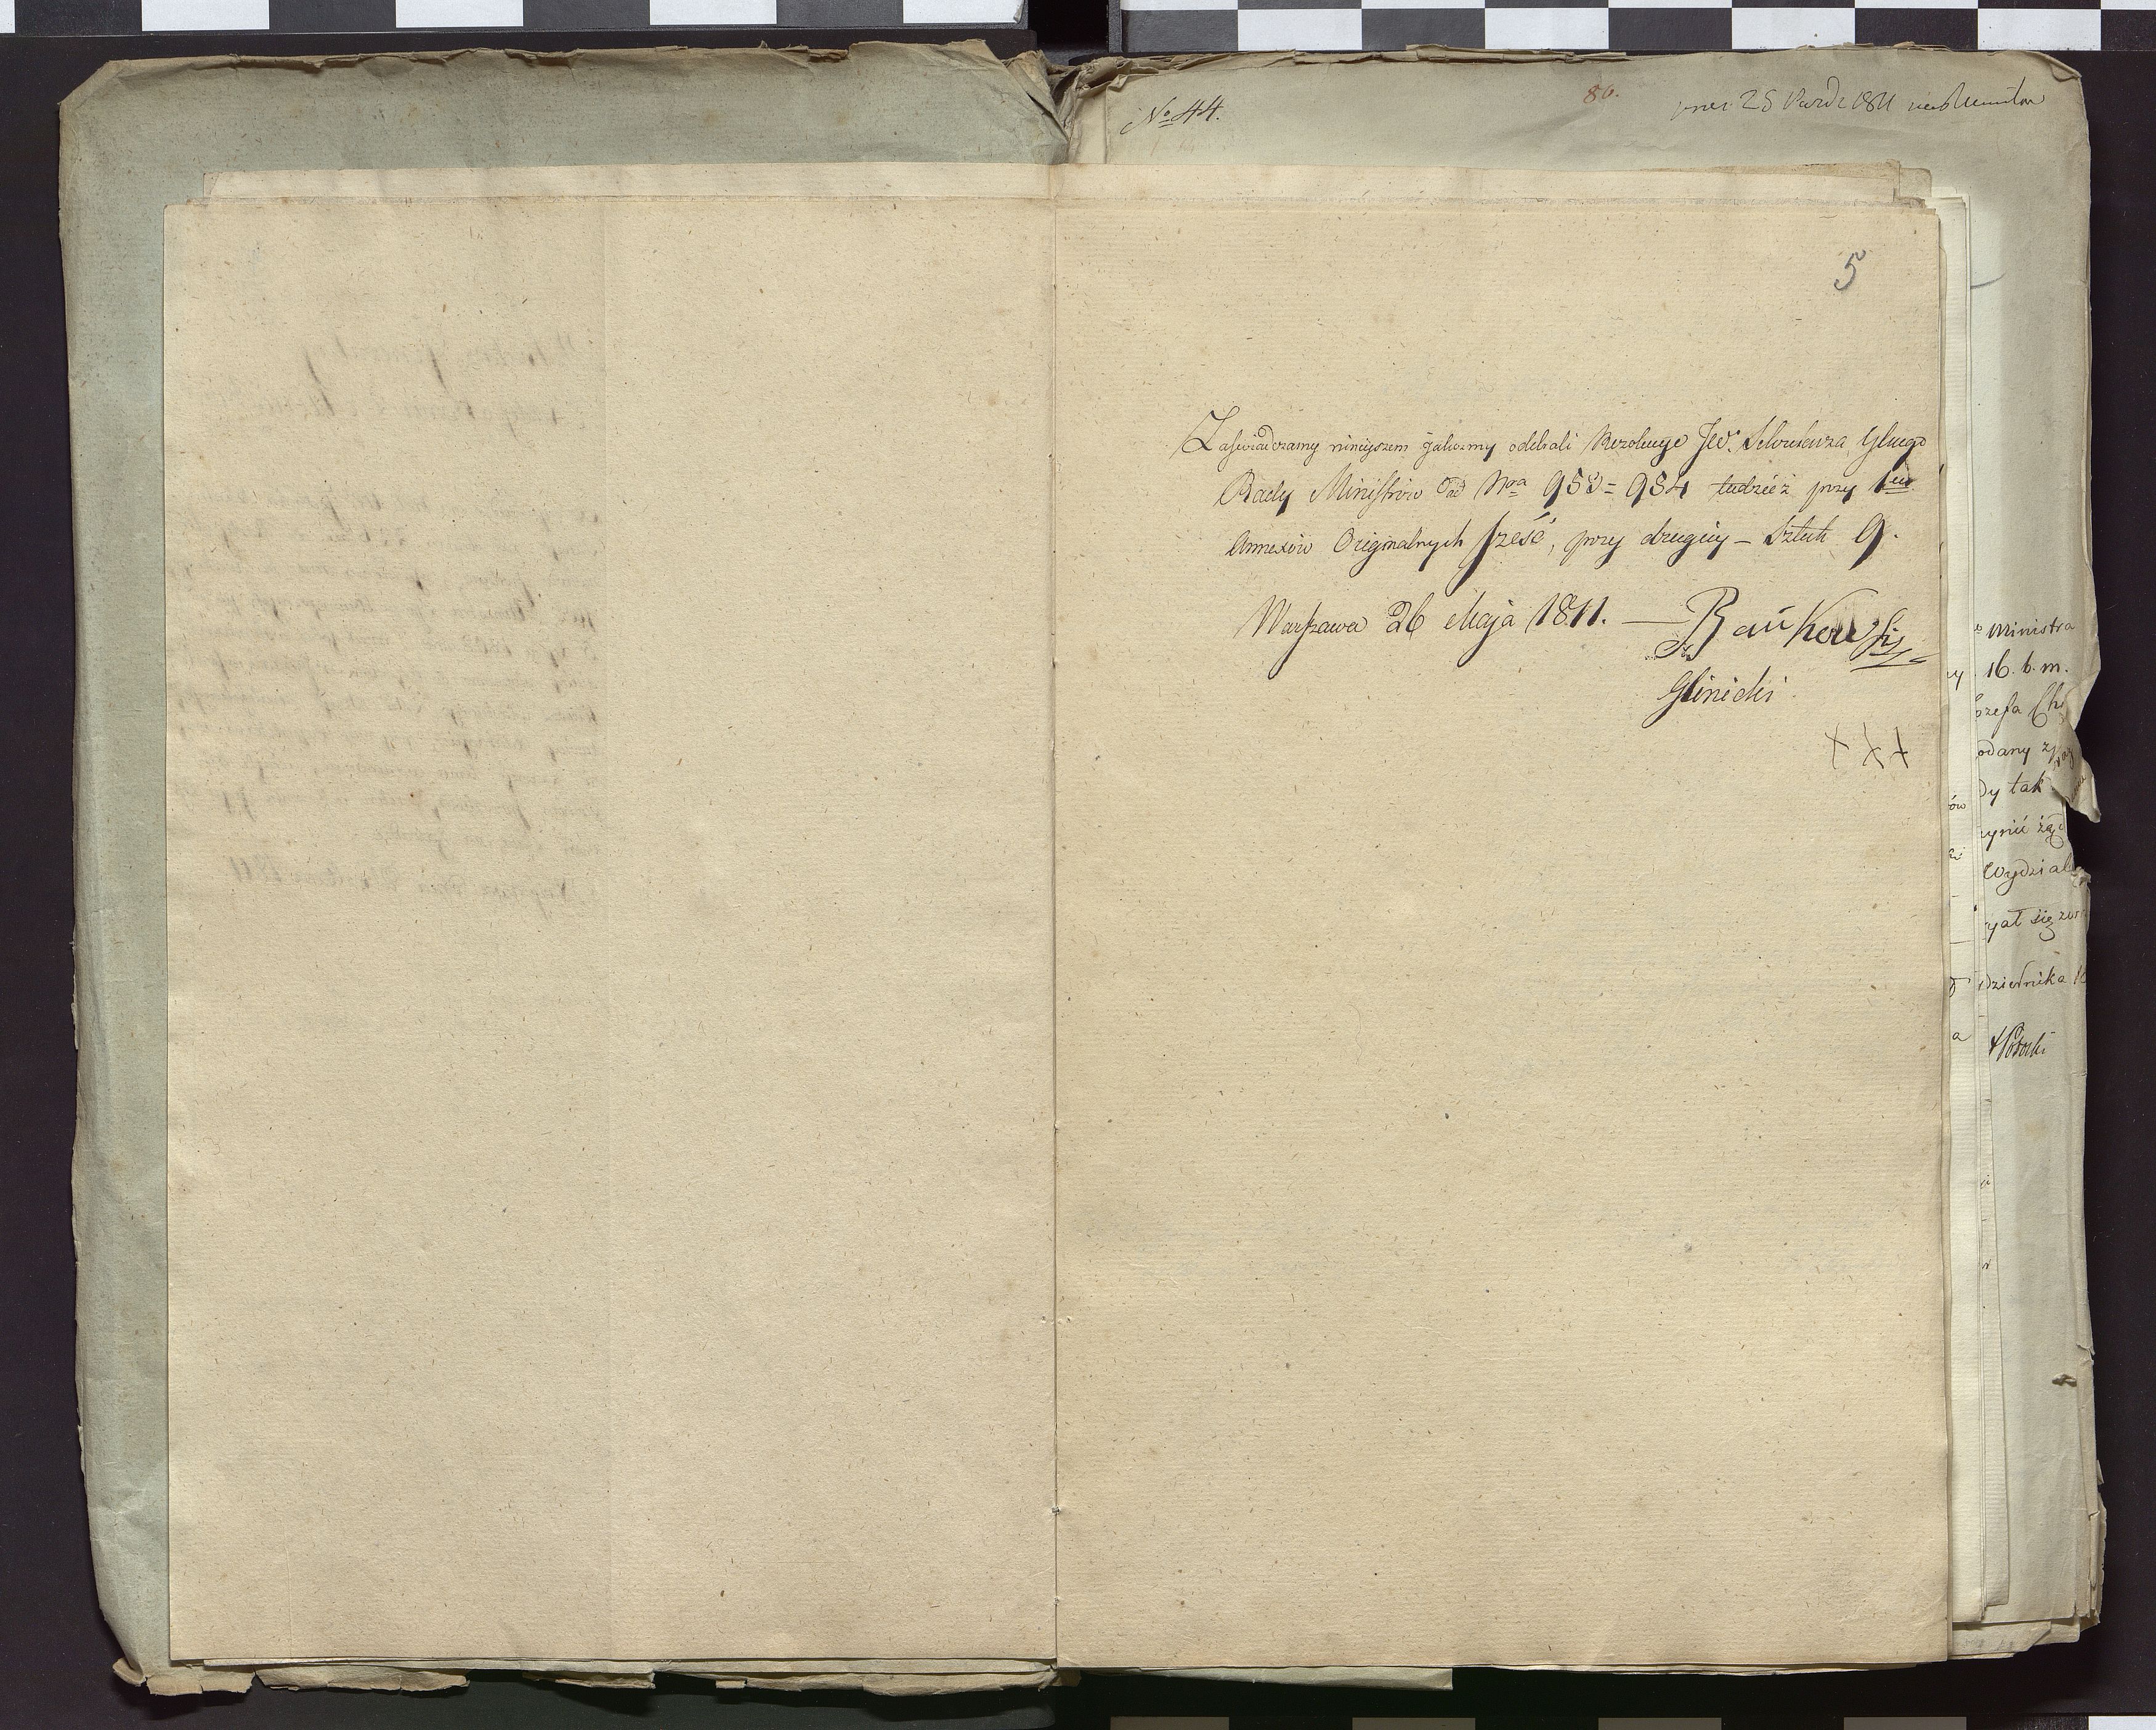 No 44.
86.
25 1811
5
Zaświadczamy ninieyszem jakośmy odebrali Rezolucye JW. Sekretarza Glnego
Rady Ministrów Od Nra 953 = 954 tudzież przy 1ey
Annexów Originalnych sześć, przy drugiey – Sztuk 9.
Warszawa 26 Maja 1811. — Bańkowski
Glinicki
+ + +
Ministra
16. b. m.
ozefa Ch
odany
dy tak
ynić żąd
Wydział
yał się
dziernika
Potocki